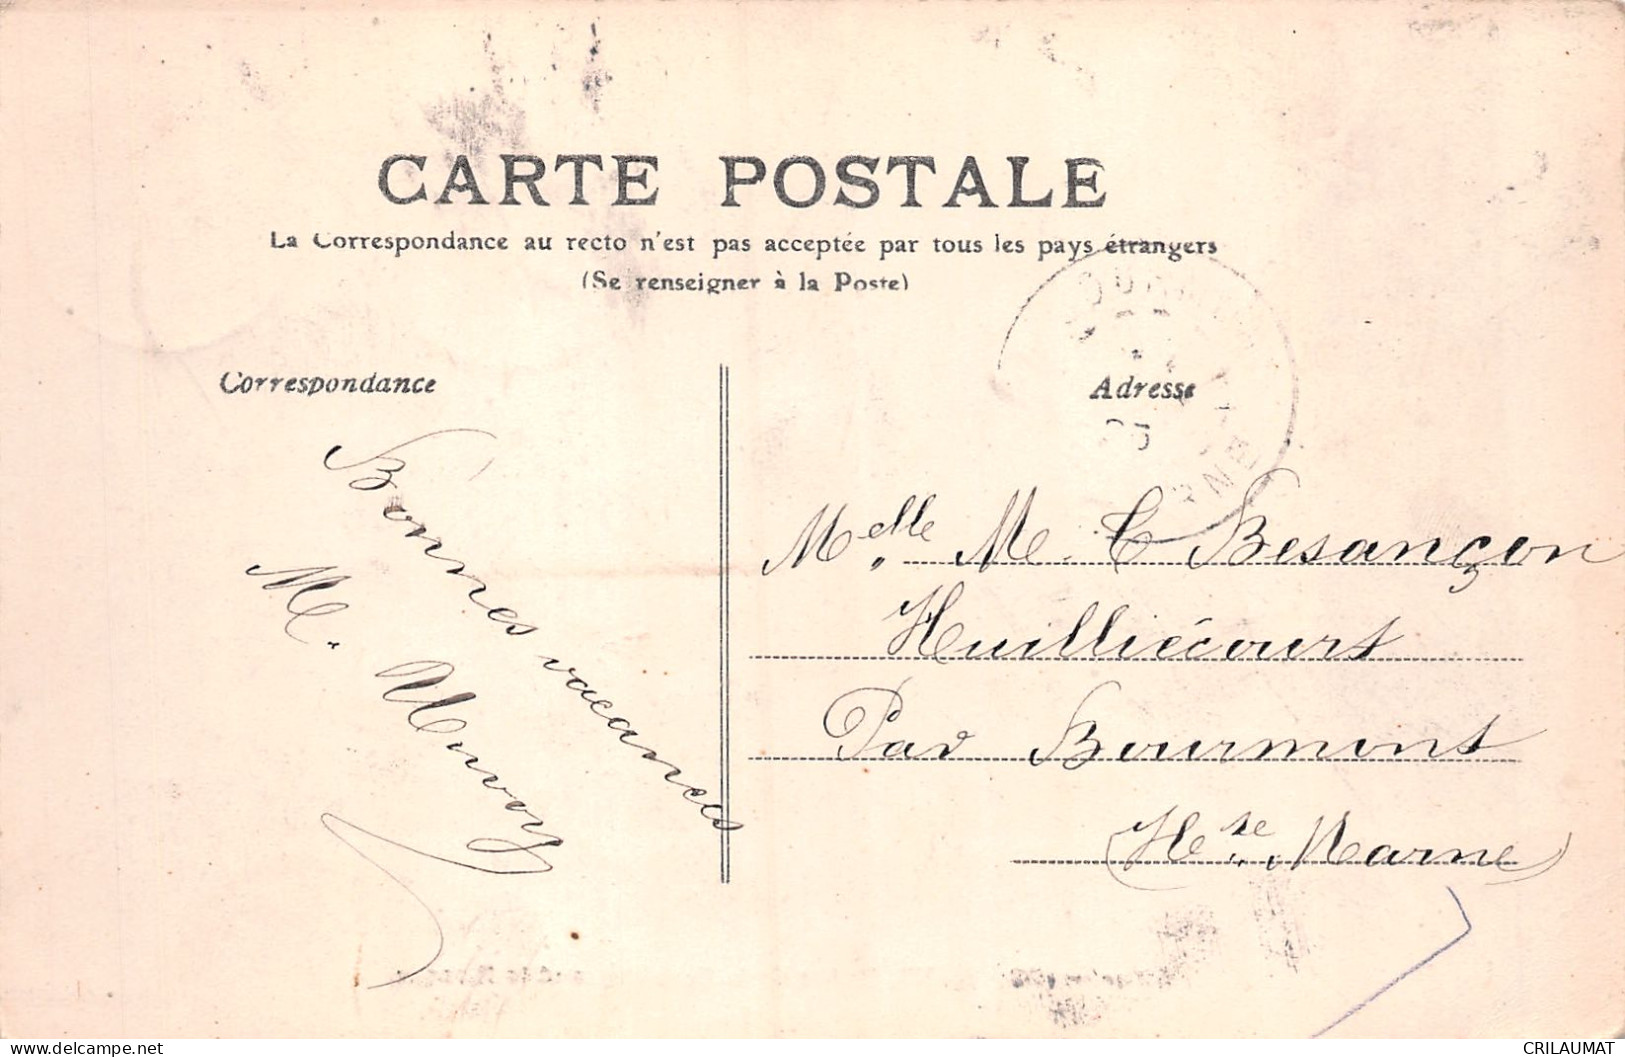 CARTE POSTALE
La Correspondance au recto n'est pas acceptée par tous les pays étrangers
(Se renseigner à la Poste)
Correspondance
Adresse
Bonnes vacances
M.
Melle M. C Besançon
Huilliécourt
Par Bourmont
(Hte. Marne)
www.delcampe.net
CRILAUMAT